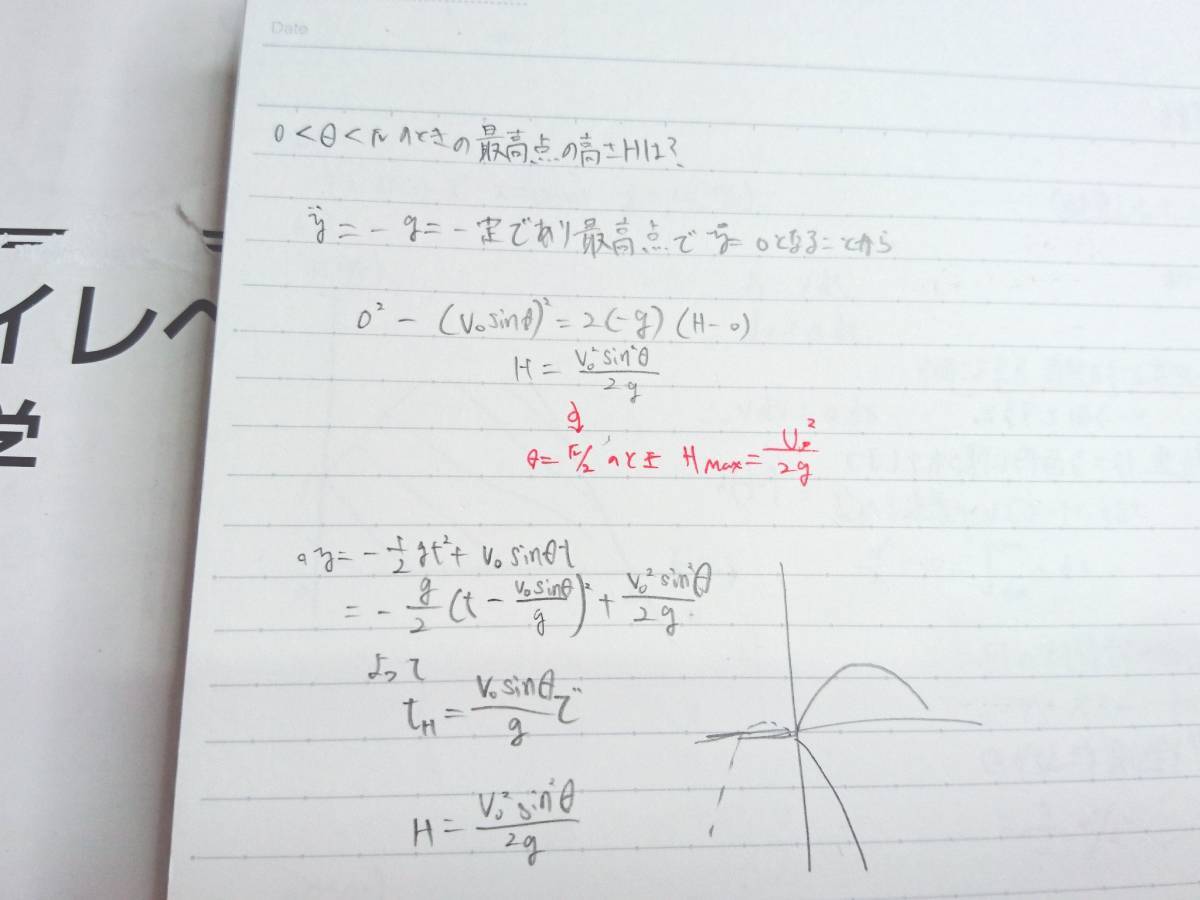 Date
0<θ<πのときの最高点の高さHは?
ÿ = -g = 一定であり最高点で ẏ = 0となることから
0² - (V₀sinθ)² = 2(-g)(H-0)
H = V₀²sin²θ/2g
イレベ
θ = π/2 のとき Hmax = V₀²/2g
学
y = -1/2 gt² + V₀ sinθt
= -g/2 (t - V₀sinθ/g)² + V₀²sin²θ/2g
よって
tH = V₀sinθ/g で
H = V₀²sin²θ/2g